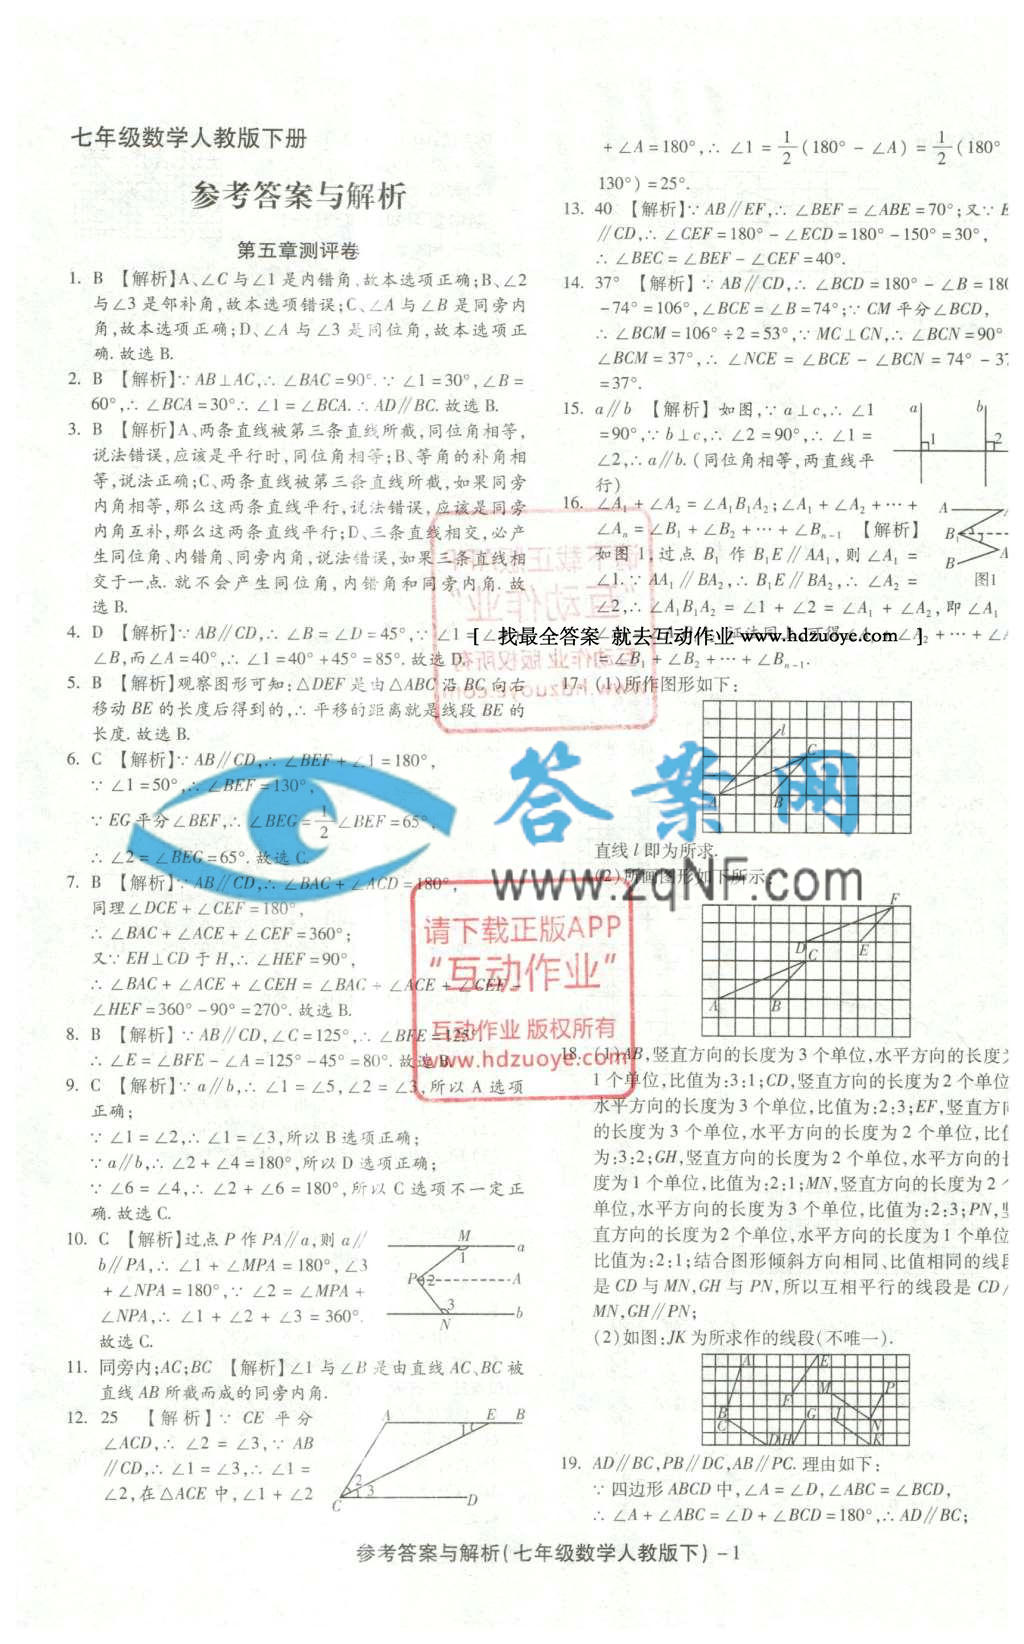 七年级数学人教版下册
参考答案与解析
第五章测评卷
1. B 【解析】A、∠C与∠1是内错角,故本选项正确;B、∠2
与∠3是邻补角,故本选项错误;C、∠A与∠B是同旁内
角,故本选项正确;D、∠A与∠3是同位角,故本选项正
确.故选B.
2. B 【解析】∵AB⊥AC,∴∠BAC=90°.∵∠1=30°,∠B=
60°,∴∠BCA=30°∴∠1=∠BCA.∴AD∥BC.故选B.
3. B 【解析】A、两条直线被第三条直线所截,同位角相等,
说法错误,应该是平行时,同位角相等;B、等角的补角相
等,说法正确;C、两条直线被第三条直线所截,如果同旁
内角相等,那么这两条直线平行,说法错误,应该是同旁
内角互补,那么这两条直线平行;D、三条直线相交,必产
生同位角、内错角、同旁内角,说法错误,如果三条直线相
交于一点.就不会产生同位角,内错角和同旁内角.故
选B.
4. D 【解析】∵AB∥CD,∴∠B=∠D=45°,∵∠1=∠
∠B,而∠A=40°,∴∠1=40°+45°=85°.故选D.
5. B 【解析】观察图形可知:△DEF是由△ABC沿BC向右
移动BE的长度后得到的,∴平移的距离就是线段BE的
长度.故选B.
6. C 【解析】∵AB∥CD,∴∠BEF+∠1=180°,
∵∠1=50°,∴∠BEF=130°,
∵EG平分∠BEF,∴∠BEG=1/2∠BEF=65°,
∴∠2=∠BEG=65°.故选C.
7. B 【解析】∵AB∥CD,∴∠BAC+∠ACD=180°,
同理∠DCE+∠CEF=180°,
∴∠BAC+∠ACE+∠CEF=360°;
又∵EH⊥CD于H,∴∠HEF=90°,
∴∠BAC+∠ACE+∠CEH=∠BAC+∠ACE+∠CEF-
∠HEF=360°-90°=270°.故选B.
8. B 【解析】∵AB∥CD,∠C=125°,∴∠BFE=125°.
∴∠E=∠BFE-∠A=125°-45°=80°.故选B.
9. C 【解析】∵a∥b,∴∠1=∠5,∠2=∠3,所以A选项
正确;
∵∠1=∠2,∴∠1=∠3,所以B选项正确;
∵a∥b,∴∠2+∠4=180°,所以D选项正确;
∵∠6=∠4,∴∠2+∠6=180°,所以C选项不一定正
确.故选C.
10. C 【解析】过点P作PA∥a,则a∥
b∥PA,∴∠1+∠MPA=180°,∠3
+∠NPA=180°,∵∠2=∠MPA+
∠NPA,∴∠1+∠2+∠3=360°.
故选C.
M
1
a
P
2
A
3
N
b
11. 同旁内;AC;BC 【解析】∠1与∠B是由直线AC、BC被
直线AB所截而成的同旁内角.
12. 25 【解析】∵CE平分
∠ACD,∴∠2=∠3,∵AB
∥CD,∴∠1=∠3,∴∠1=
∠2,在△ACE中,∠1+∠2
A E B
1
2
3
C D
+∠A=180°,∴∠1=1/2(180°-∠A)=1/2(180°
130°)=25°.
13. 40 【解析】∵AB∥EF,∴∠BEF=∠ABE=70°;又∵E
∥CD,∴∠CEF=180°-∠ECD=180°-150°=30°,
∴∠BEC=∠BEF-∠CEF=40°.
14. 37° 【解析】∵AB∥CD,∴∠BCD=180°-∠B=180
-74°=106°,∠BCE=∠B=74°;∵CM平分∠BCD,
∴∠BCM=106°÷2=53°,∵MC⊥CN,∴∠BCN=90°
∠BCM=37°,∴∠NCE=∠BCE-∠BCN=74°-37
=37°.
15. a∥b 【解析】如图,∵a⊥c,∴∠1
=90°,∵b⊥c,∴∠2=90°,∴∠1=
∠2,∴a∥b.(同位角相等,两直线平
行)
a
b
1
2
16. ∠A₁+∠A₂=∠A₁B₁A₂;∠A₁+∠A₂+…+
∠Aₙ=∠B₁+∠B₂+…+∠Bₙ₋₁ 【解析】
如图1,过点B₁作B₁E∥AA₁,则∠A₁=
∠1.∵AA₁∥BA₂,∴B₁E∥BA₂,∴∠A₂=
∠2,∴∠A₁B₁A₂=∠1+∠2=∠A₁+∠A₂,即∠A₁
[ 找最全答案 就去互动作业 www.hdzuoye.com ]
=∠B₁+∠B₂+…+∠Bₙ₋₁.
图1
17. (1)所作图形如下:
l
C
A
B
直线l即为所求.
(2)所画图形如下所示:
F
D
E
C
A
B
18. (1)AB,竖直方向的长度为3个单位,水平方向的长度
1个单位,比值为:3:1;CD,竖直方向的长度为2个单位
水平方向的长度为3个单位,比值为:2:3;EF,竖直方
的长度为3个单位,水平方向的长度为2个单位,比
为:3:2;GH,竖直方向的长度为2个单位,水平方向的
度为1个单位,比值为:2:1;MN,竖直方向的长度为2
单位,水平方向的长度为3个单位,比值为:2:3;PN,
直方向的长度为2个单位,水平方向的长度为1个单位
比值为:2:1;结合图形倾斜方向相同、比值相同的线
是CD与MN,GH与PN,所以互相平行的线段是CD
MN,GH∥PN;
(2)如图:JK为所求作的线段(不唯一).
A E
M P
F
B G
C J N
D H K
19. AD∥BC,PB∥DC,AB∥PC.理由如下:
∵四边形ABCD中,∠A=∠D,∠ABC=∠BCD,
∴∠A+∠ABC=∠D+∠BCD=180°,∴AD∥BC;
答案网
www.zqNF.com
请下载正版APP
“互动作业”
互动作业 版权所有
www.hdzuoye.com
参考答案与解析(七年级数学人教版下)-1